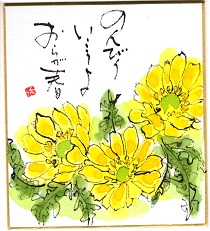 のんびり
いこうよ
おらが春